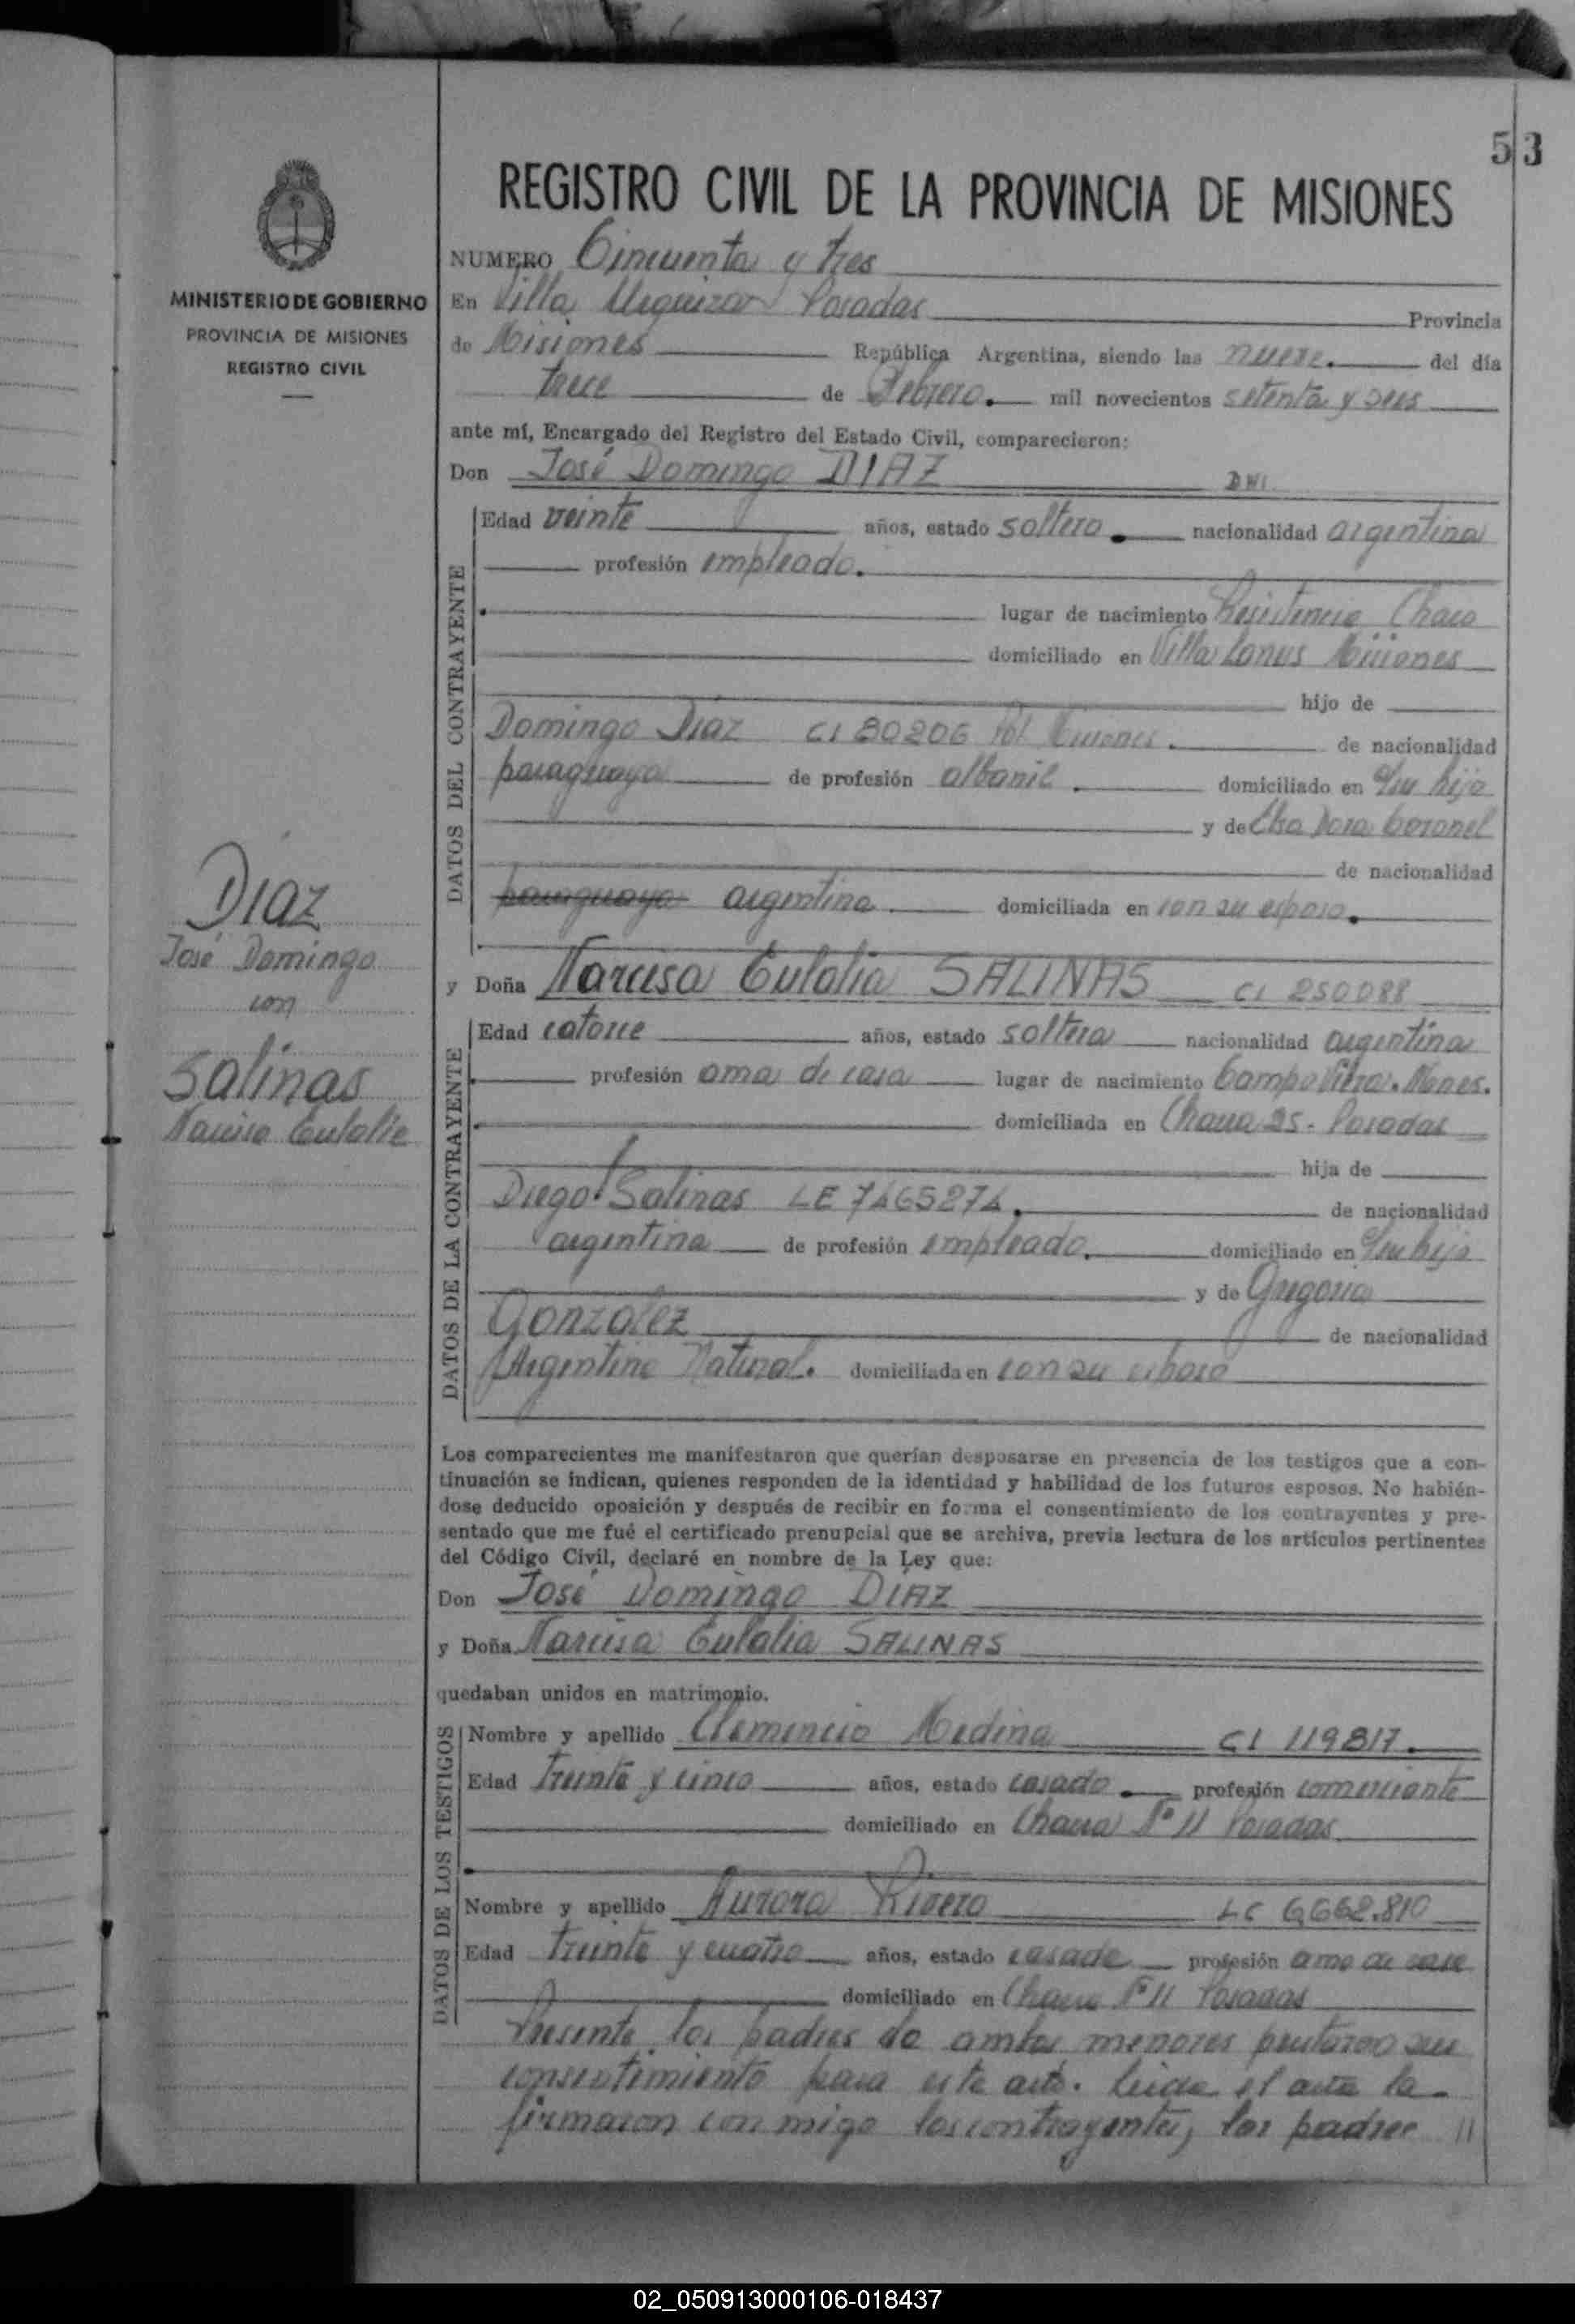 53
REGISTRO CIVIL DE LA PROVINCIA DE MISIONES
MINISTERIO DE GOBIERNO
PROVINCIA DE MISIONES
REGISTRO CIVIL
NUMERO Cincuenta y tres
En Villa Urquiza Posadas Provincia
de Misiones República Argentina, siendo las nueve. del día
trece de Febrero. mil novecientos setenta y seis
ante mí, Encargado del Registro del Estado Civil, comparecieron:
Don José Domingo DIAZ DNI
DATOS DEL CONTRAYENTE
Edad veinte años, estado soltero. nacionalidad argentina
profesión empleado.
lugar de nacimiento Resistencia Chaco
domiciliado en Villa Lanus Misiones
hijo de
Domingo Diaz CI 80206 Pol Misiones. de nacionalidad
paraguaya de profesión albanil. domiciliado en c/su hijo
y de Elsa Dora Coronel
de nacionalidad
paraguaya argentina domiciliada en con su esposo.
y Doña Narcisa Eulalia SALINAS CI 250088
DATOS DE LA CONTRAYENTE
Edad catorce años, estado soltera nacionalidad argentina
profesión ama de casa lugar de nacimiento Campo Viera. Mnes.
domiciliada en Chacra 25. Posadas
hija de
Diego Salinas LE 7465274. de nacionalidad
argentina de profesión empleado. domiciliado en c/su hija
y de Gregoria
Gonzalez de nacionalidad
Argentina Natural. domiciliada en con su esposo
Los comparecientes me manifestaron que querían desposarse en presencia de los testigos que a con-
tinuación se indican, quienes responden de la identidad y habilidad de los futuros esposos. No habién-
dose deducido oposición y después de recibir en forma el consentimiento de los contrayentes y pre-
sentado que me fué el certificado prenupcial que se archiva, previa lectura de los artículos pertinentes
del Código Civil, declaré en nombre de la Ley que:
Don José Domingo DIAZ
y Doña Narcisa Eulalia SALINAS
quedaban unidos en matrimonio.
DATOS DE LOS TESTIGOS
Nombre y apellido Clemencio Medina CI 119817.
Edad Treinta y cinco años, estado casado. profesión comerciante
domiciliado en Chacra Nº 11 Posadas
Nombre y apellido Aurora Rivero LC 6.662.810
Edad Treinta y cuatro años, estado casada profesión ama de casa
domiciliado en Chacra Nº 11 Posadas
Presente los padres de ambos menores prestaron su
consentimiento para este acto. Leida el acta la
firmaron con migo los contrayentes, los padres //
DIAZ
José Domingo
con
Salinas
Narcisa Eulalia
02_050913000106-018437